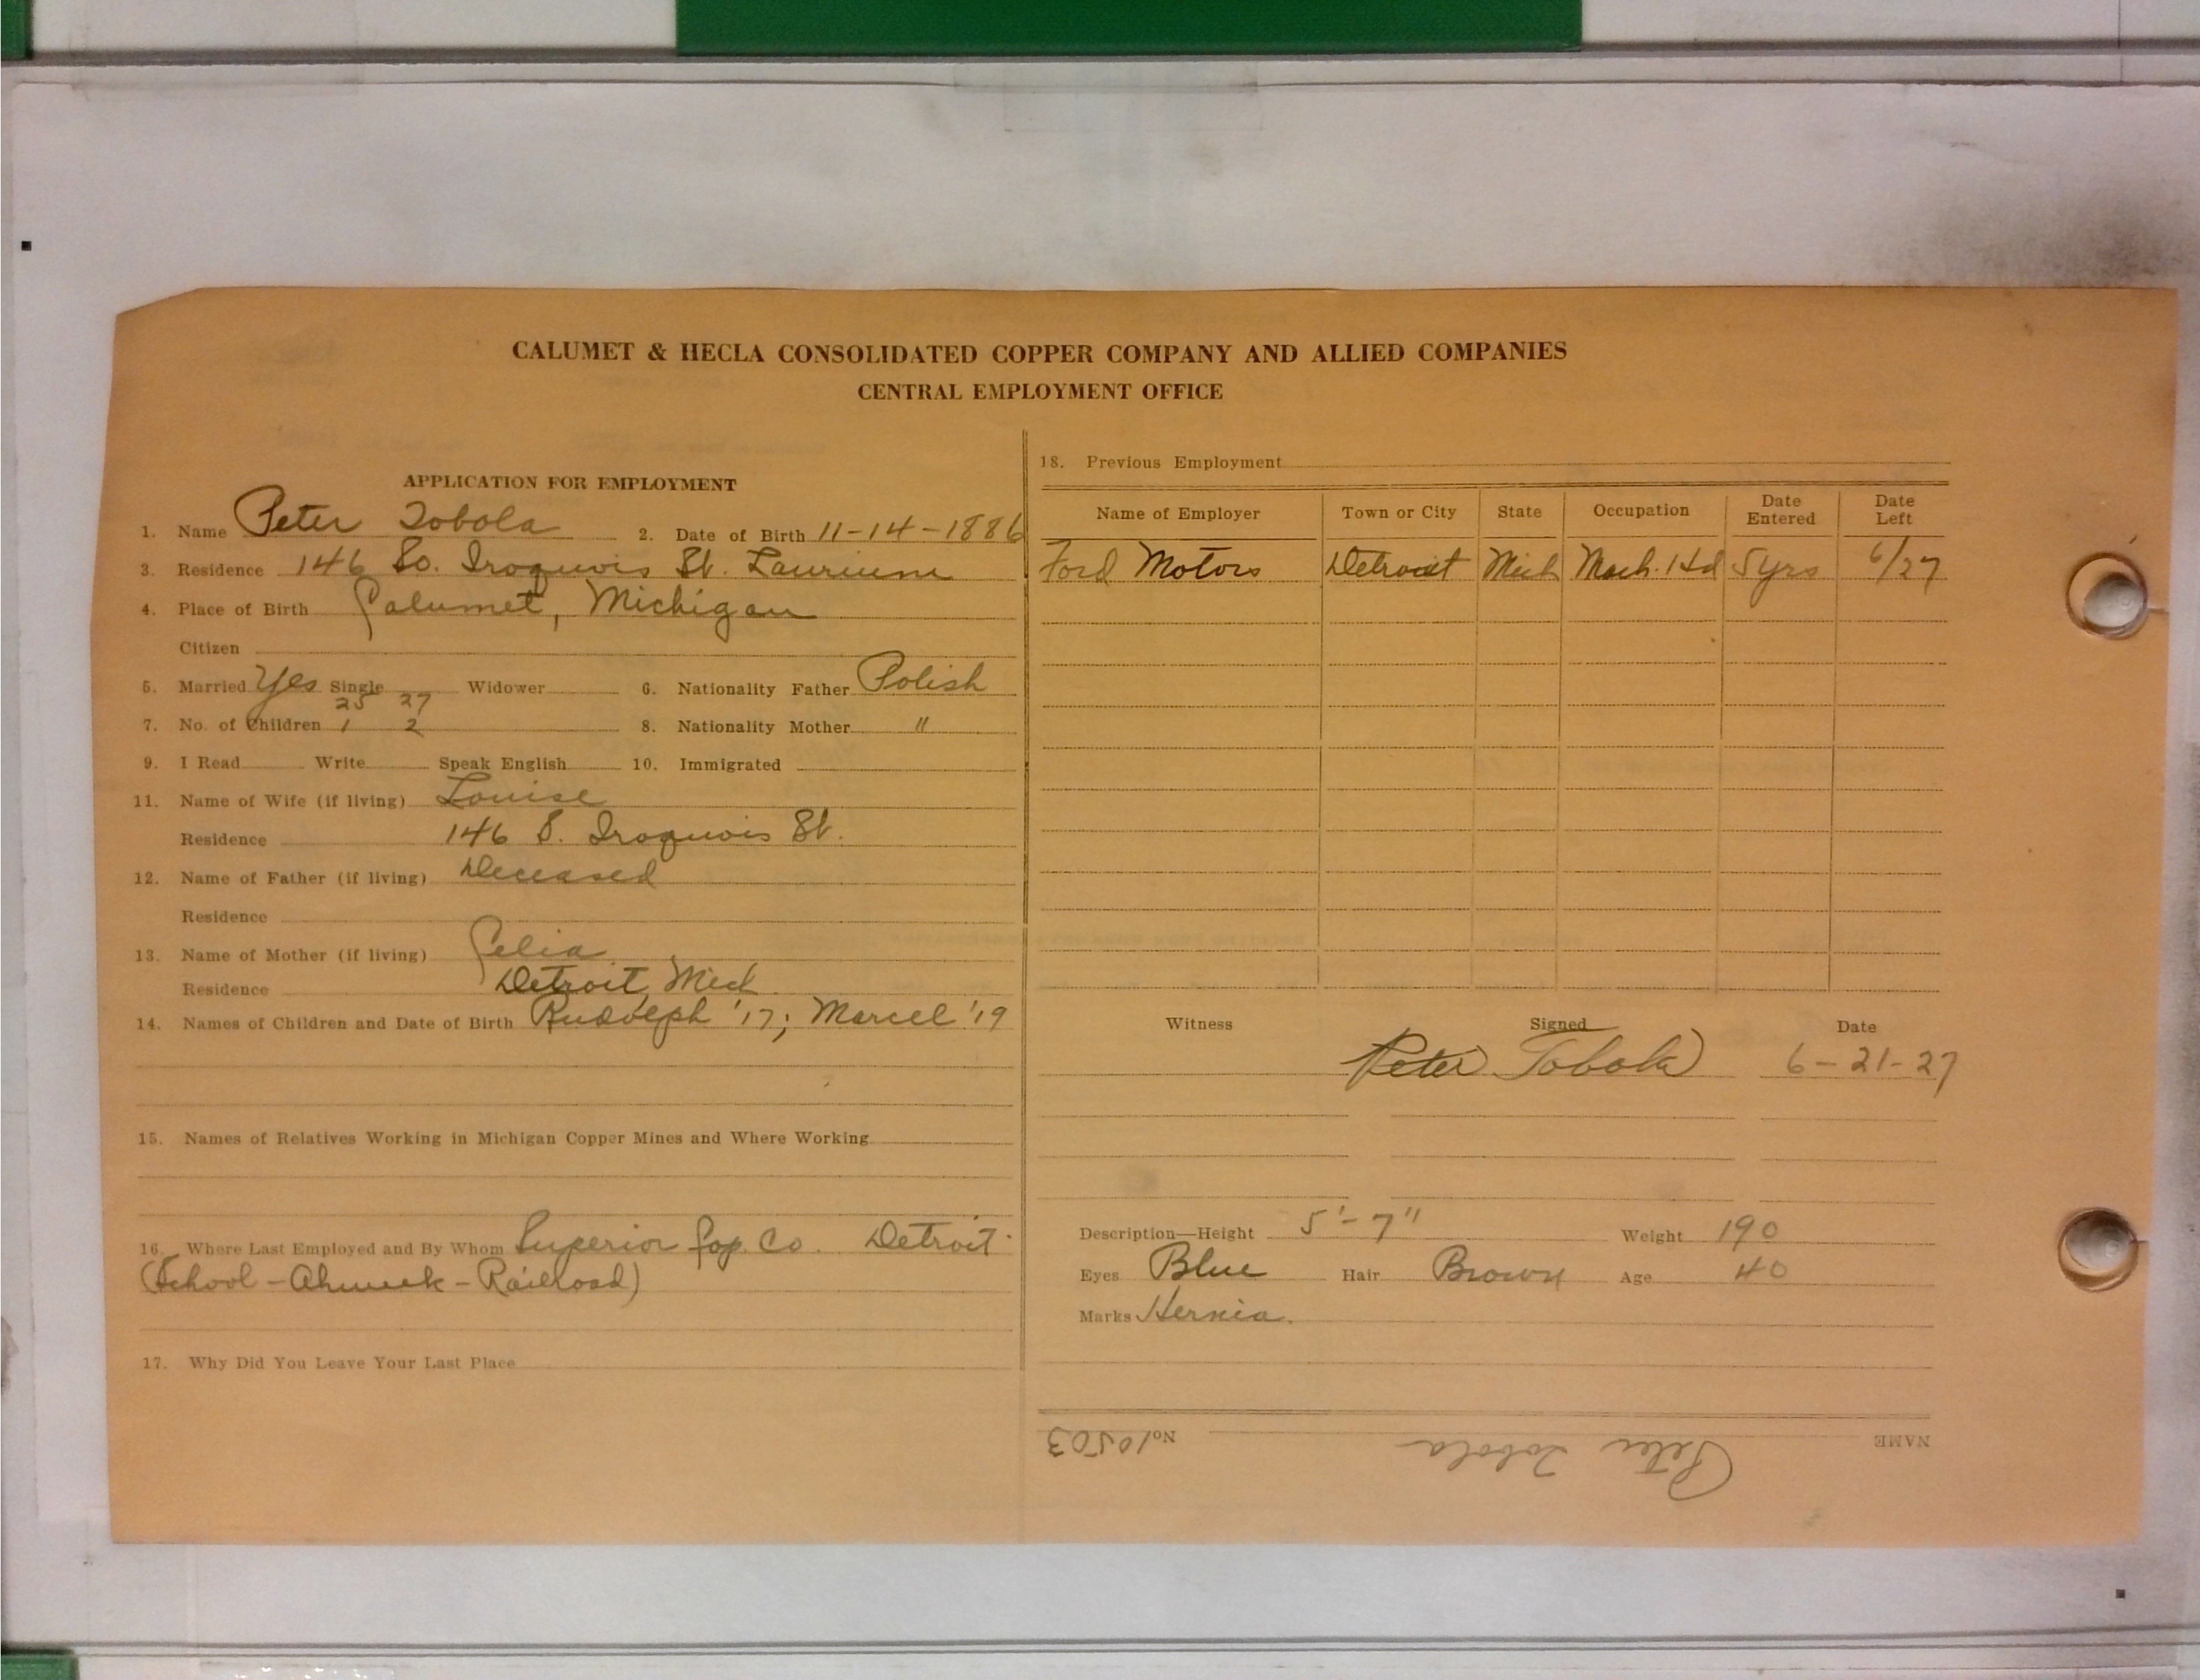 CALUMET & HECLA CONSOLIDATED COPPER COMPANY AND ALLIED COMPANIES
CENTRAL EMPLOYMENT OFFICE
APPLICATION FOR EMPLOYMENT
1. Name Peter Tobola 2. Date of Birth 11-14-1886
3. Residence 146 So. Iroquois St. Laurium
4. Place of Birth Calumet, Michigan
Citizen
5. Married Yes Single Widower 6. Nationality Father Polish
25 27
7. No. of Children 1 2 8. Nationality Mother "
9. I Read Write Speak English 10. Immigrated
11. Name of Wife (if living) Louise
Residence 146 S. Iroquois St.
12. Name of Father (if living) Deceased
Residence
13. Name of Mother (if living) Celia
Residence Detroit, Mich
14. Names of Children and Date of Birth Rudolph '17; Marcel '19
15. Names of Relatives Working in Michigan Copper Mines and Where Working
16. Where Last Employed and By Whom Superior Cop. Co. Detroit
(School - Ahmeek - Railroad)
17. Why Did You Leave Your Last Place
18. Previous Employment
Name of Employer Town or City State Occupation Date Entered Date Left
Ford Motors Detroit Mich Mach. Hd 5 yrs 6/27
Witness Signed Date
Peter Tobola 6-21-27
Description—Height 5'-7" Weight 190
Eyes Blue Hair Brown Age 40
Marks Hernia.
NAME Peter Tobola No 10503